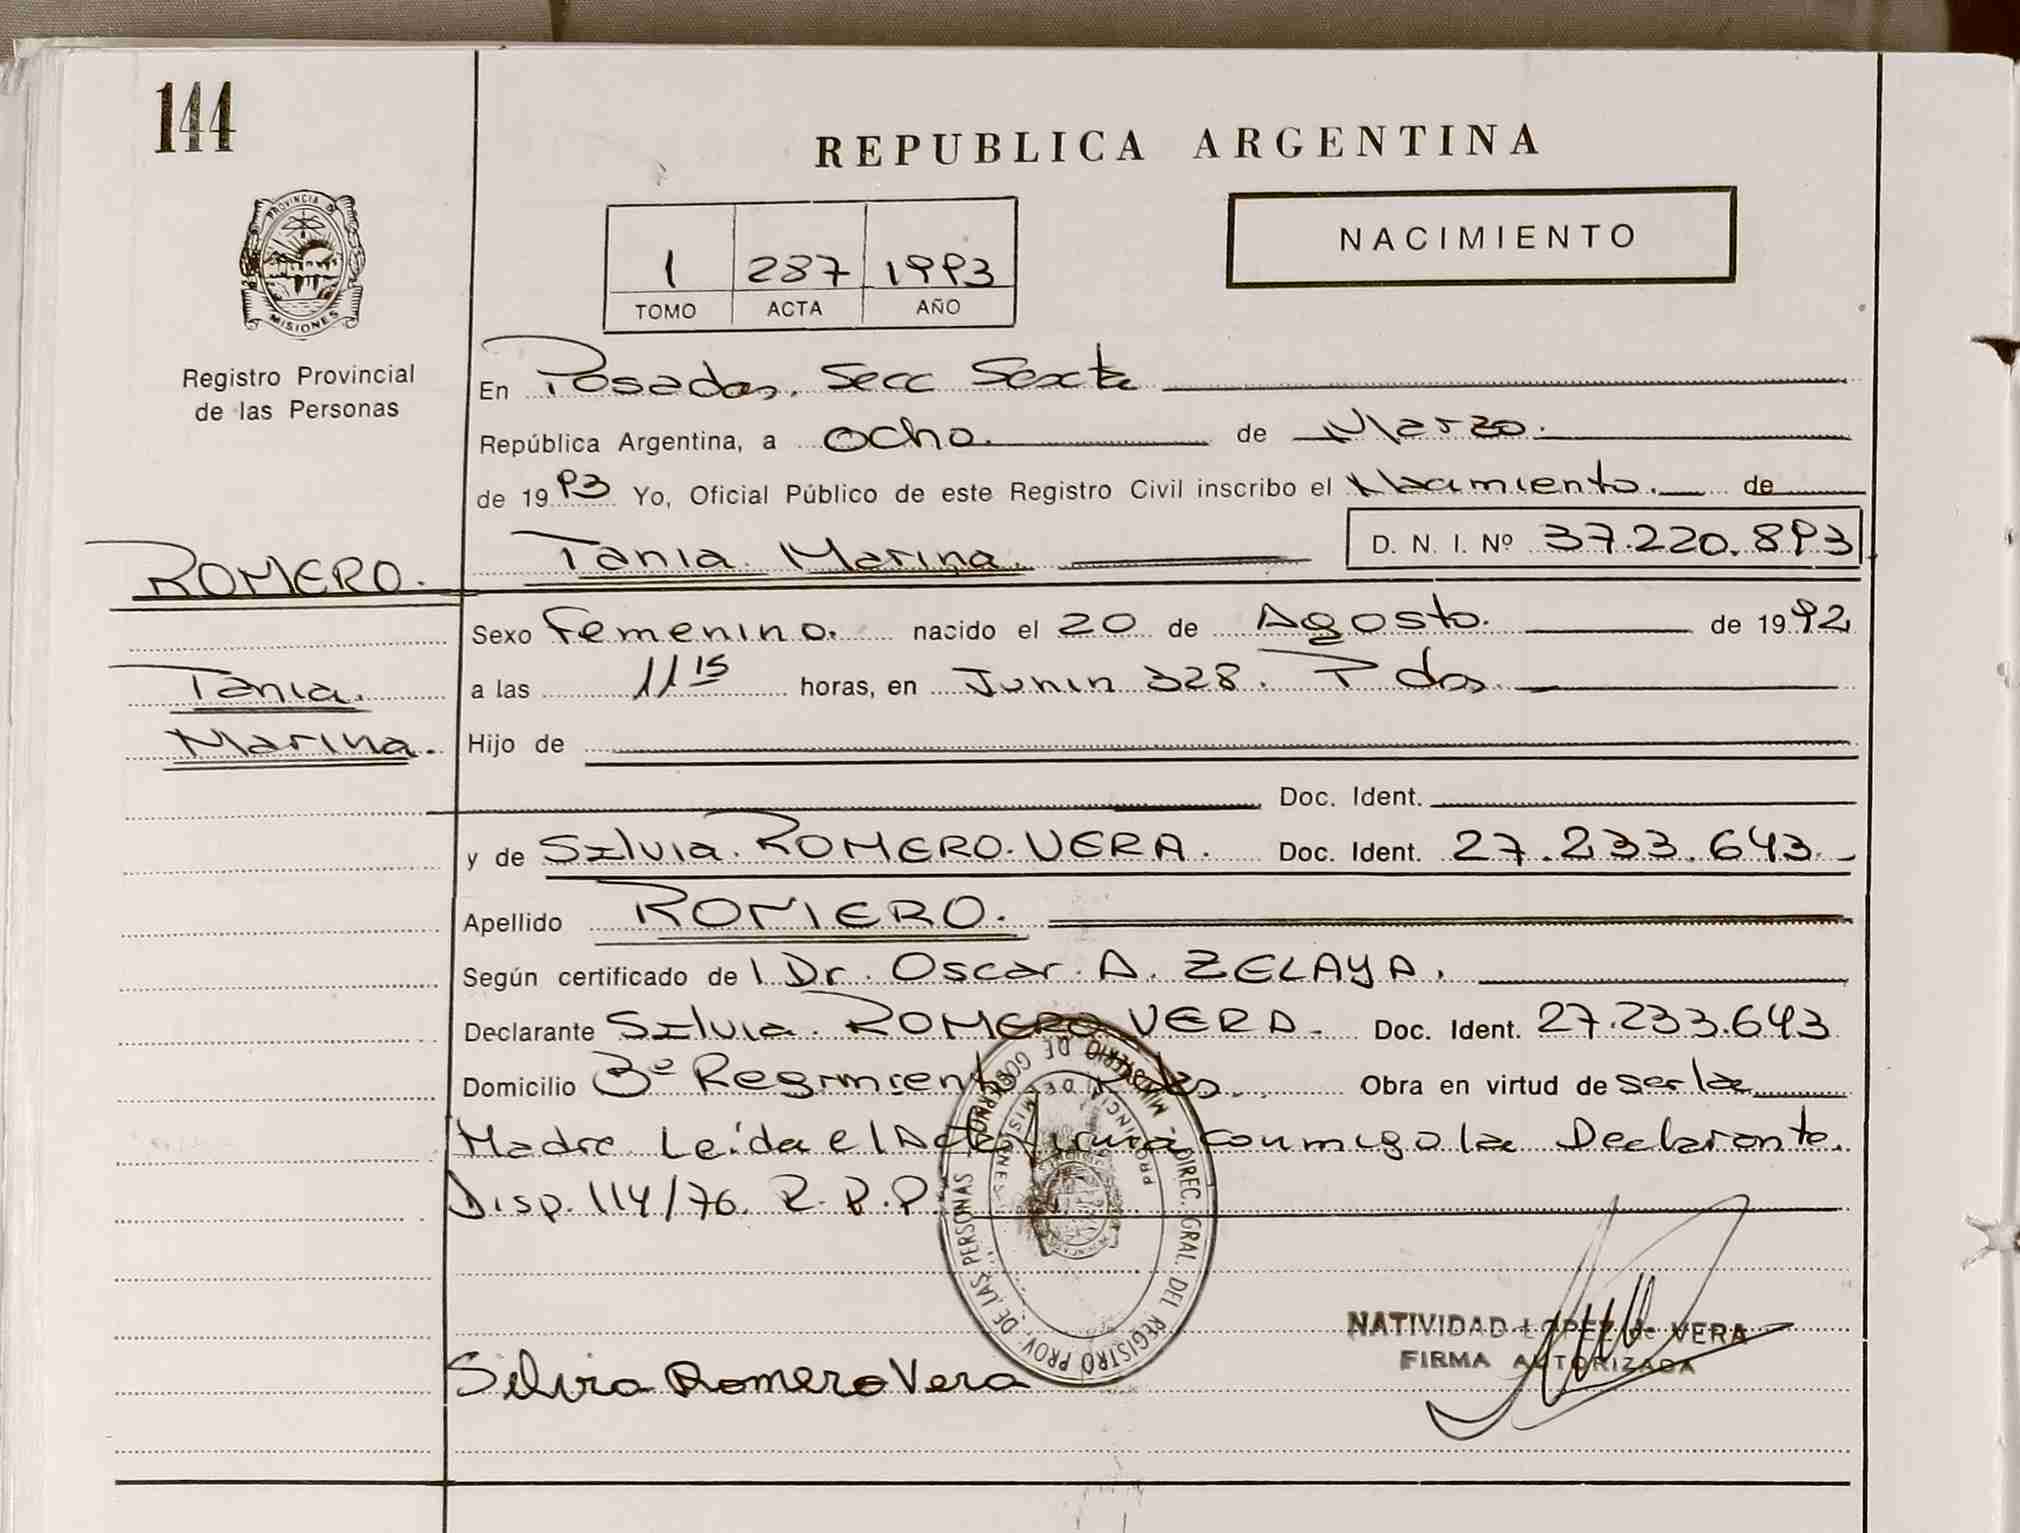 144
REPUBLICA ARGENTINA
PROVINCIA DE
MISIONES
Registro Provincial
de las Personas
1 287 1993
TOMO ACTA AÑO
NACIMIENTO
En Posadas, Secc Sexta
República Argentina, a ocho. de Marzo.
de 1993 Yo, Oficial Público de este Registro Civil inscribo el Nacimiento. de
ROMERO. Tania Marina. D. N. I. Nº 37.220.893
Sexo Femenino. nacido el 20 de Agosto. de 1992
Tania. a las 11 15 horas, en Junin 328. Pdas.
Marina. Hijo de
Doc. Ident.
y de Silvia. ROMERO. VERA. Doc. Ident. 27.233.643.
Apellido ROMERO.
Según certificado de l Dr. Oscar. A. ZELAYA.
Declarante Silvia. ROMERO VERA. Doc. Ident. 27.233.643
Domicilio 3º Regimiento Obra en virtud de ser la
Madre Leida el Acta firma conmigo la Declarante.
Disp. 114/76. R. P. P.
MINISTERIO DE GOBIERNO DIREC. GRAL. DEL REGISTRO PROV. DE LAS PERSONAS
PROVINCIA DE MISIONES
NATIVIDAD LOPEZ de VERA
FIRMA AUTORIZADA
Silvia Romero Vera